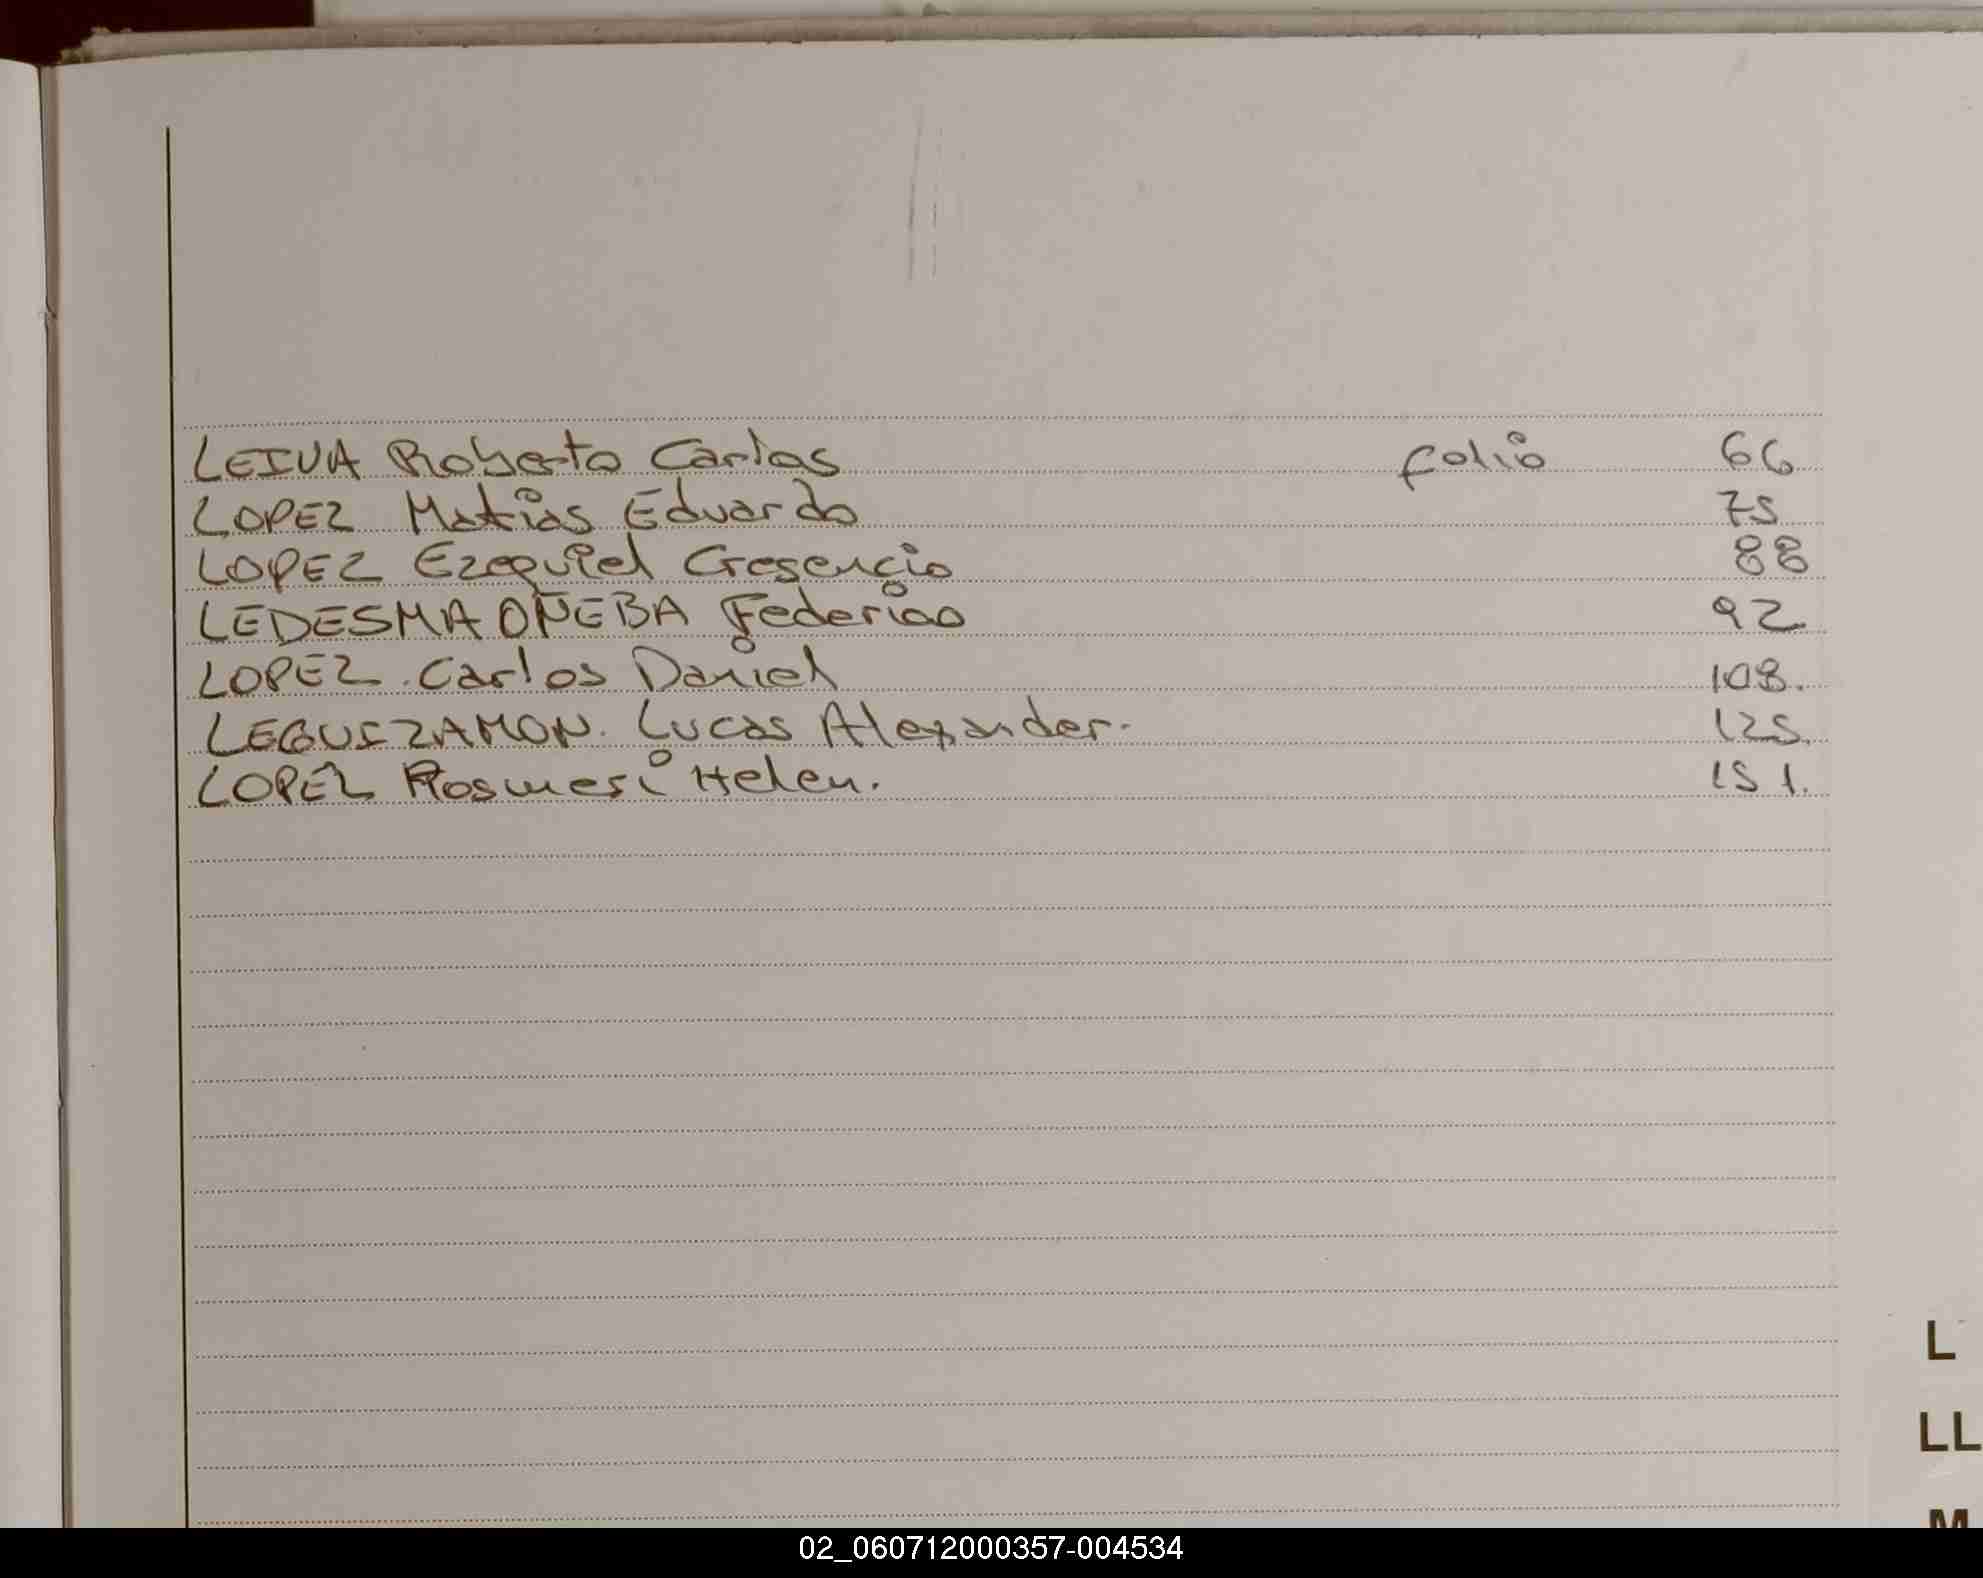 LEIVA Roberto Carlos folio 66
LOPEZ Matias Eduardo 75
LOPEZ Ezequiel Cresencio 88
LEDESMA OÑEBA Federico 92
LOPEZ. Carlos Daniel 108.
LEGUIZAMON. Lucas Alexander. 125.
LOPEZ Rosmeri Helen. 151.
L
LL
M
02_060712000357-004534